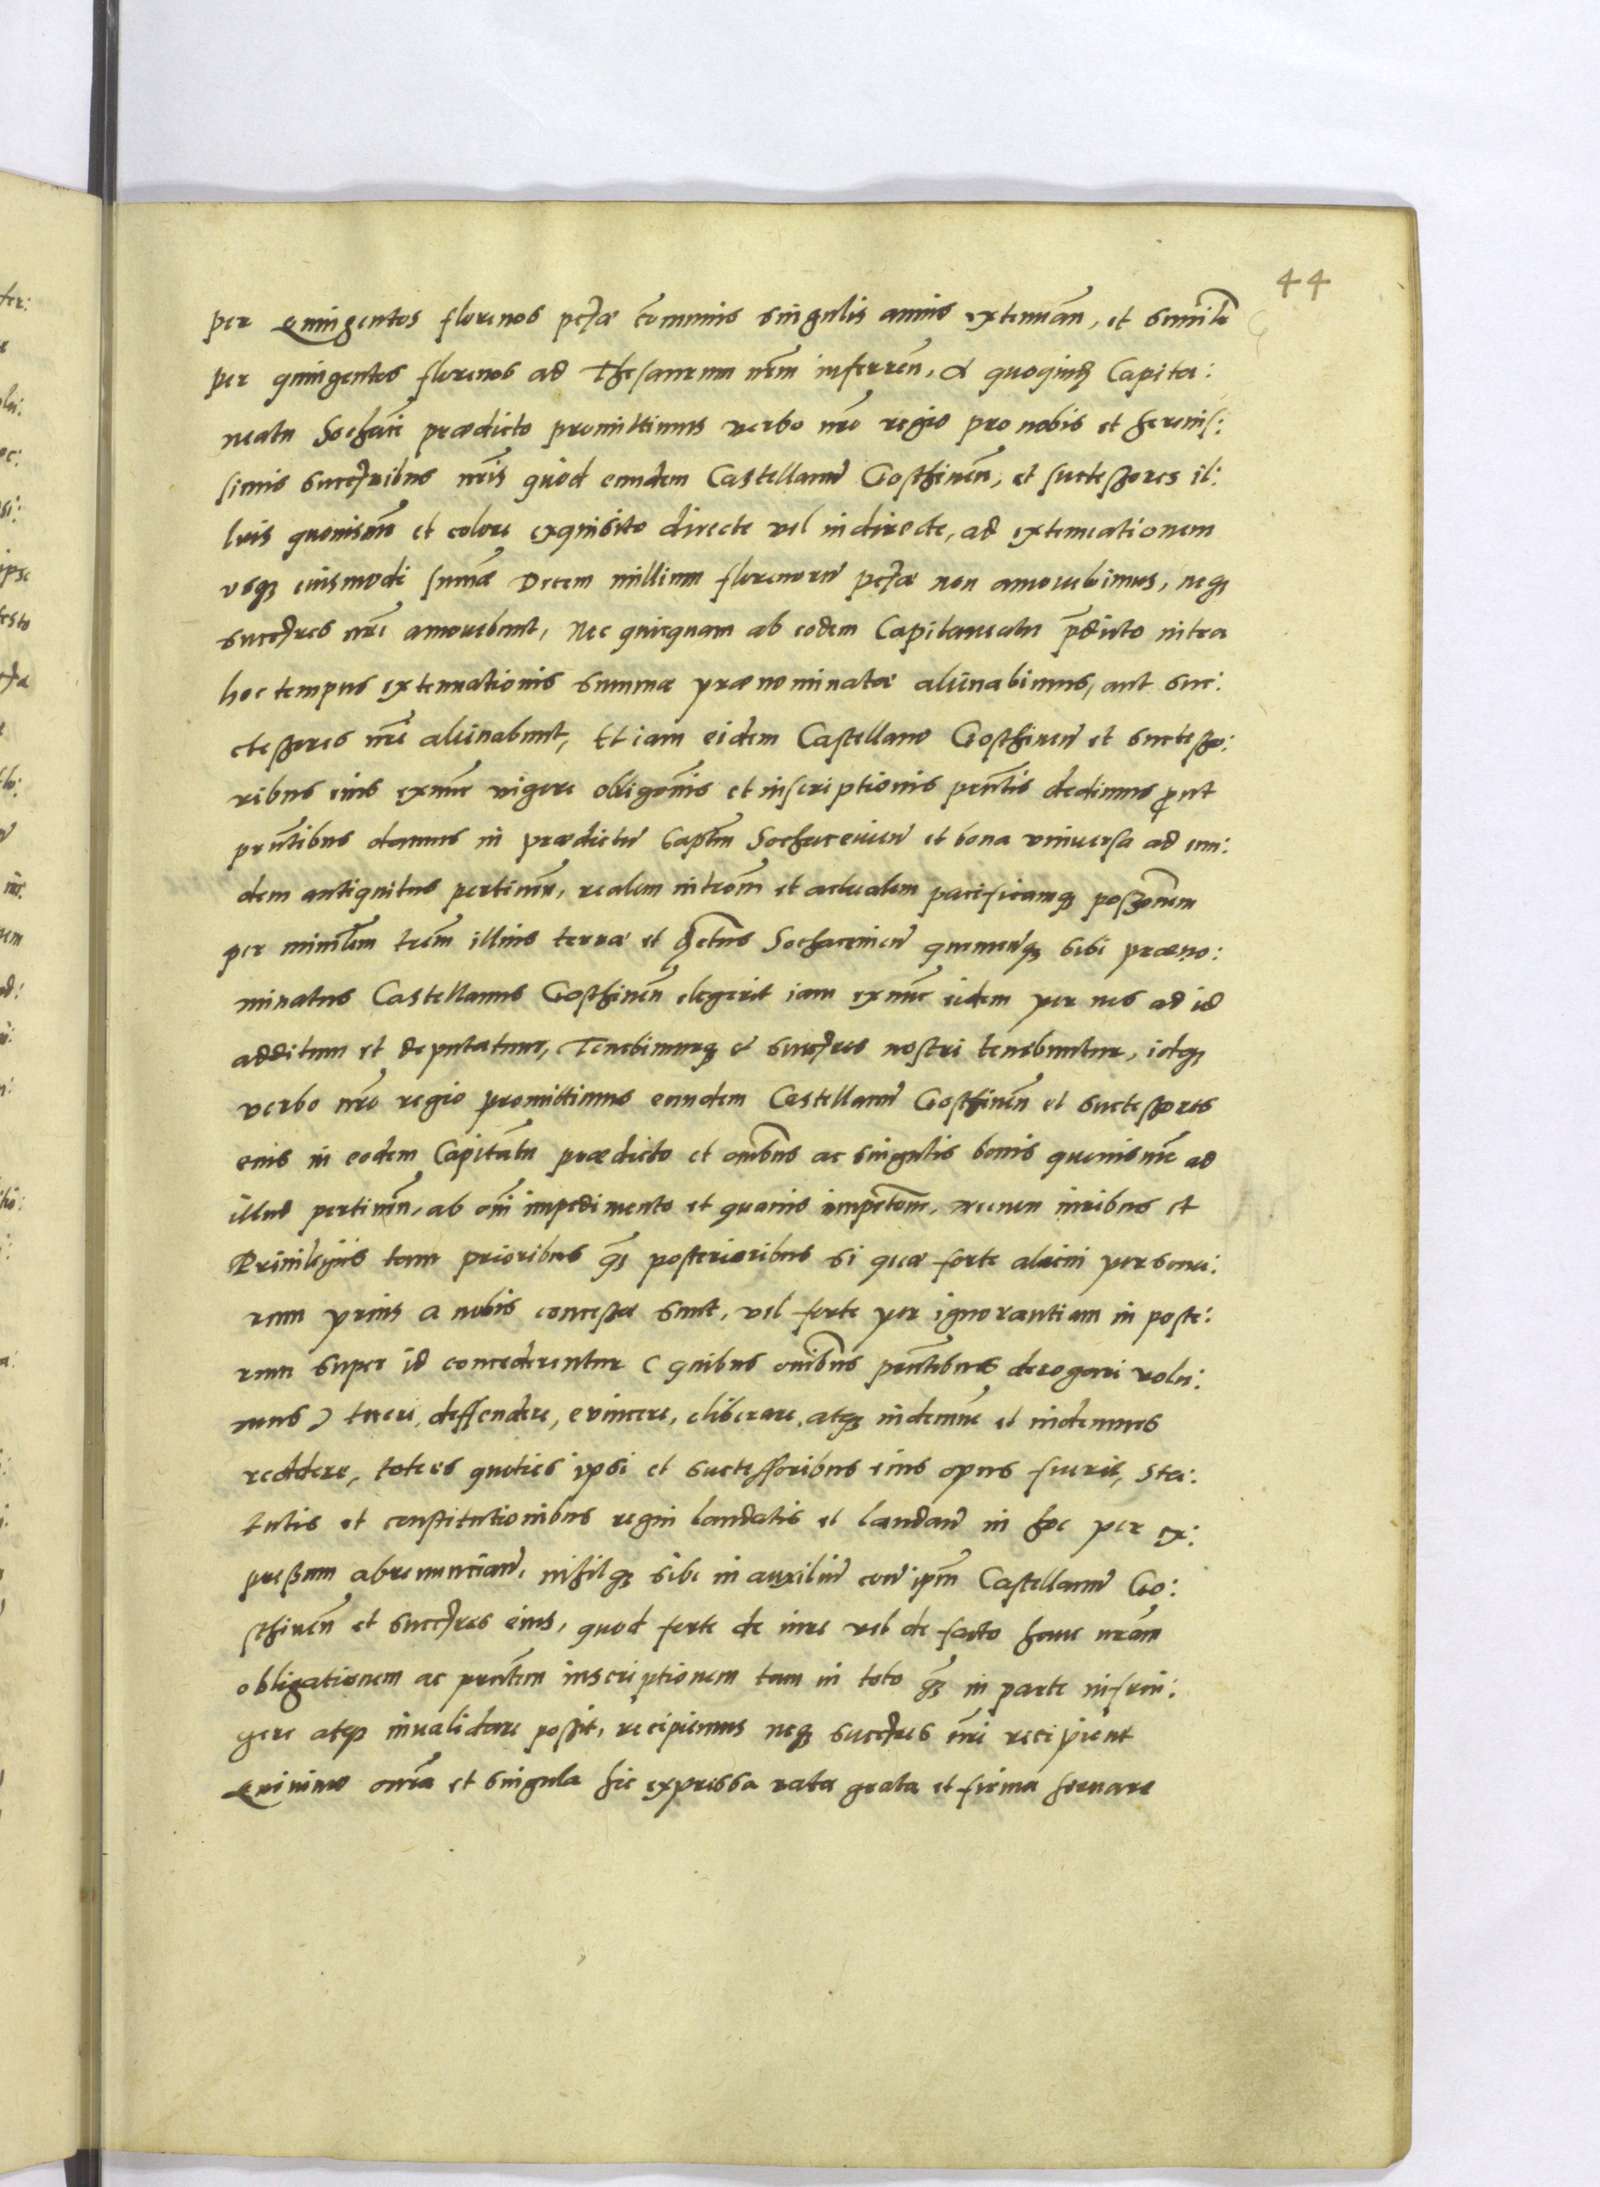 44
per Quingentos florenos pctæ commis singulis annis extenuan, et similr
per quingentos florenos ad Thesaurum nrm inferren, & quoquidē Capita:
neatu Sochacē prædicto promittimus verbo nro regio pro nobis et serenis:
simis succribus nris quod eundem Castellanū Gosthinen, et successores il:
lius quouismō et colore exquisito directe vel indirecte, ad extenuationem
usq; eiusmodi summæ Decem millium florenorū pctæ non amouebimus, neq;
succres nri amouebunt, Nec quicquam ab eodem Capitaneatu prdicto intra
hoc tempus extenuationis summæ prænominatæ alienabimus, aut suc:
cessores nri alienabunt, Etiam eidem Castellano Gosthinen et successo:
ribus eius exnunc vigore obligonis et inscriptionis pntis dedimus prout
prntibus damus in prædictū Captm Sochaceuien et bona vniuersa ad eun:
dem antiquitus pertinen, realem introm et actualem pacificamq; possonem
per minilem trem illius terræ et dctus Sochaceuien quemcunq; sibi præno:
minatus Castellanus Gosthinen elegerit iam exnunc eidem per nos ad id
additum et deputatum, Tenebimurq; & succres nostri tenebuntur, idq;
verbo nro regio promittimus eundem Castellanū Gosthinen et successores
eius in eodem Capitatu prædicto et omibus ac singulis bonis quouismō ad
illud pertinen, ab omi impedimento et quouis impetom, necnon iuribus et
Priuilegijs tam prioribus q̃; posterioribus si quæ forte alicui persona:
rum prius a nobis concessa sunt, vel forte per ignorantiam in poste:
rum super id concederentur (quibus omibus pntibus derogari volu:
mus) tueri, deffendere, euincere, eliberare, atq; indemne et indemnes
reddere, toties quoties ipsi et successoribus eius opus fuerit, Sta:
tutis et constitutionibus regni laudatis et laudan in hoc per ex:
pressum abrenuncian, nihilq; sibi in auxiliū con ipm Castellanū Go:
sthinen et succres eius, quod forte de iure vel de facto hanc nram
obligationem ac pntem inscriptionem tam in toto q̃; in parte infrin:
gere atq; inualidare possit, recipiemus neq; succres nri recipient
Quinimo omia et singula hic expressa rata grata et firma seruare